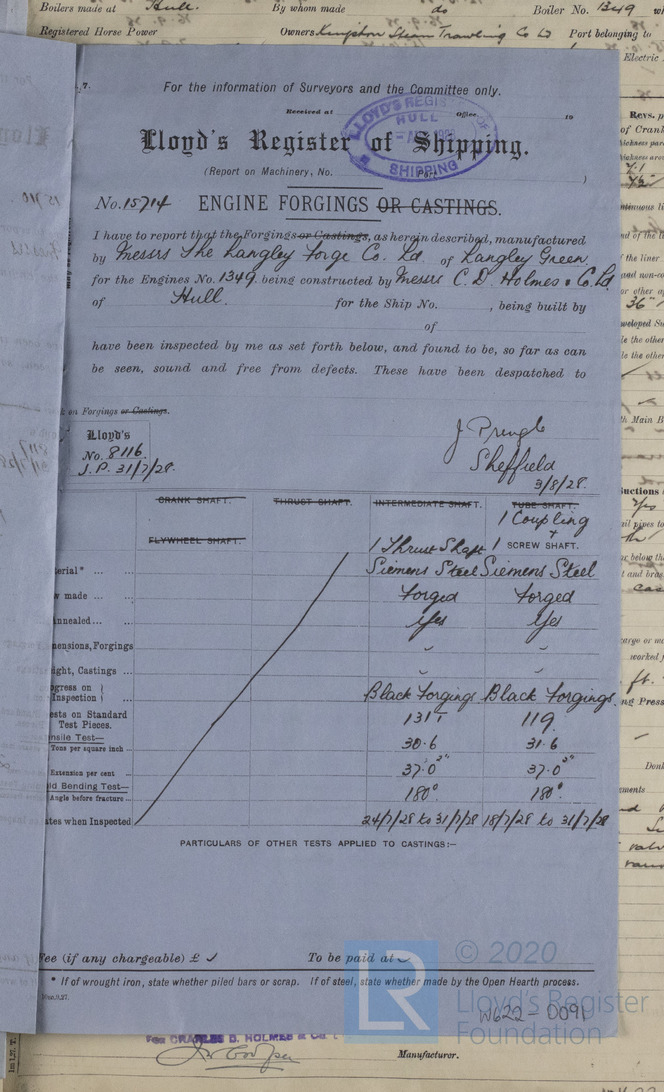 Boilers made at Hull. By whom made do Boiler No. 1349
Registered Horse Power Owners Kingston Steam Trawling Co Ld Port belonging to
Electric
For the information of Surveyors and the Committee only.
Received at Office, 19
Lloyd's Register of Shipping.
LLOYD'S REGISTER OF SHIPPING HULL
(Report on Machinery, No. Port )
No. 15714 ENGINE FORGINGS OR CASTINGS.
I have to report that the Forgings or Castings, as herein described, manufactured
by Messrs The Langley Forge Co. Ld. of Langley Green
for the Engines No. 1349. being constructed by Messrs C. D. Holmes & Co. Ld
of Hull. for the Ship No. , being built by
of
have been inspected by me as set forth below, and found to be, so far as can
be seen, sound and free from defects. These have been despatched to
on Forgings or Castings.
Lloyd's
No. 8116.
J.P. 31/7/28.
J Pringle
Sheffield
3/8/28.
CRANK SHAFT. THRUST SHAFT. INTERMEDIATE SHAFT. TUBE SHAFT.
1 Coupling
+
FLYWHEEL SHAFT. 1 Thrust Shaft 1 SCREW SHAFT.
terial* ... ... Siemens Steel Siemens Steel
w made ... ... Forged Forged
nnealed... ... Yes Yes
ensions, Forgings
ight, Castings ...
ogress on
Inspection Black Forgings Black Forgings.
ests on Standard
Test Pieces. 131T 119.
nsile Test—
Tons per square inch ... 30.6 31.6
Extension per cent ... 37.0 3" 37.0 3"
ld Bending Test—
Angle before fracture ... 180° 180°.
tes when Inspected 24/7/28 to 31/7/28 18/7/28 to 31/7/28
PARTICULARS OF OTHER TESTS APPLIED TO CASTINGS:—
Fee (if any chargeable) £ To be paid at
* If of wrought iron, state whether piled bars or scrap. If of steel, state whether made by the Open Hearth process.
LR
© 2020
Lloyd's Register
Foundation
W622-0091
FOR CHARLES D. HOLMES & CO. L
Manufacturer.